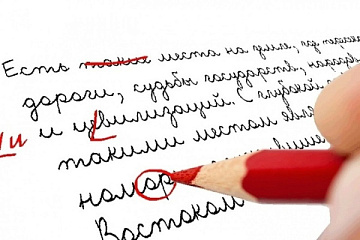 Есть такие места на земле, где
дороги, судьбы государств,
Ци и цвилизаций. С глубокой
такими местам
номор
Востоком